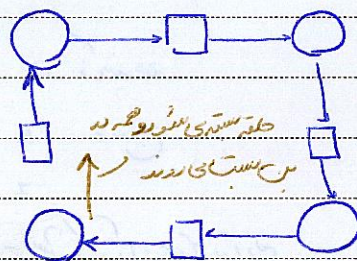 حلقه بسته می شود و همه در
بن بست می روند